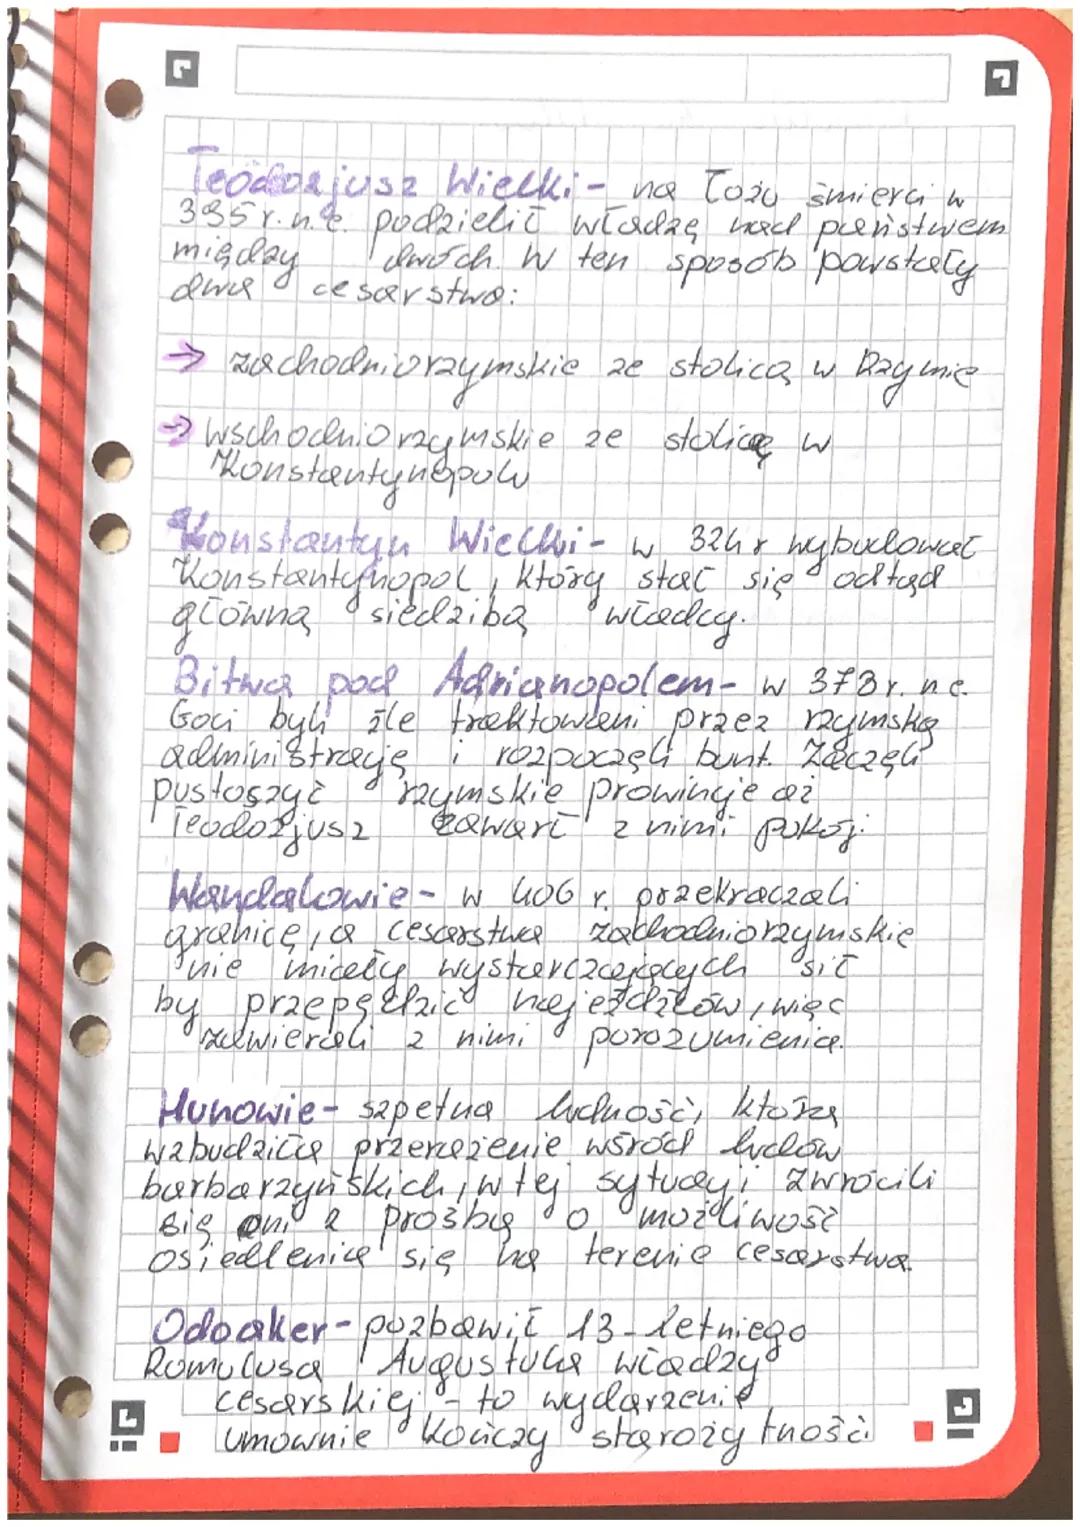 Teodozjusz Wielki - na łożu śmierci w
395 r. n.e. podzielił władzę nad państwem
między dwóch. W ten sposób powstały
dwa cesarstwa:
→ zachodniorzymskie ze stolicą w Rzymie
→ wschodniorzymskie ze stolicą w
Konstantynopolu
Konstantyn Wielki - w 324 r wybudował
Konstantynopol, który stał się odtąd
główną siedzibą władcy.
Bitwa pod Adrianopolem - w 378 r. n.e.
Goci byli źle traktowani przez rzymską
administrację i rozpoczęli bunt. Zaczęli
pustoszyć rzymskie prowincje aż
Teodozjusz zawarł z nimi pokój.
Wandalowie - w 406 r. przekraczali
granicę, a cesarstwa zachodniorzymskie
nie miały wystarczających sił
by przepędzić najeźdźców, więc
zawierali z nimi porozumienia.
Hunowie - szpetna ludność, która
wzbudziła przerażenie wśród ludów
barbarzyńskich, w tej sytuacji zwrócili
się oni z prośbą o możliwość
osiedlenia się na terenie cesarstwa.
Odoaker - pozbawił 13-letniego
Romulusa Augustula władzy
cesarskiej - to wydarzenie
umownie kończy starożytność